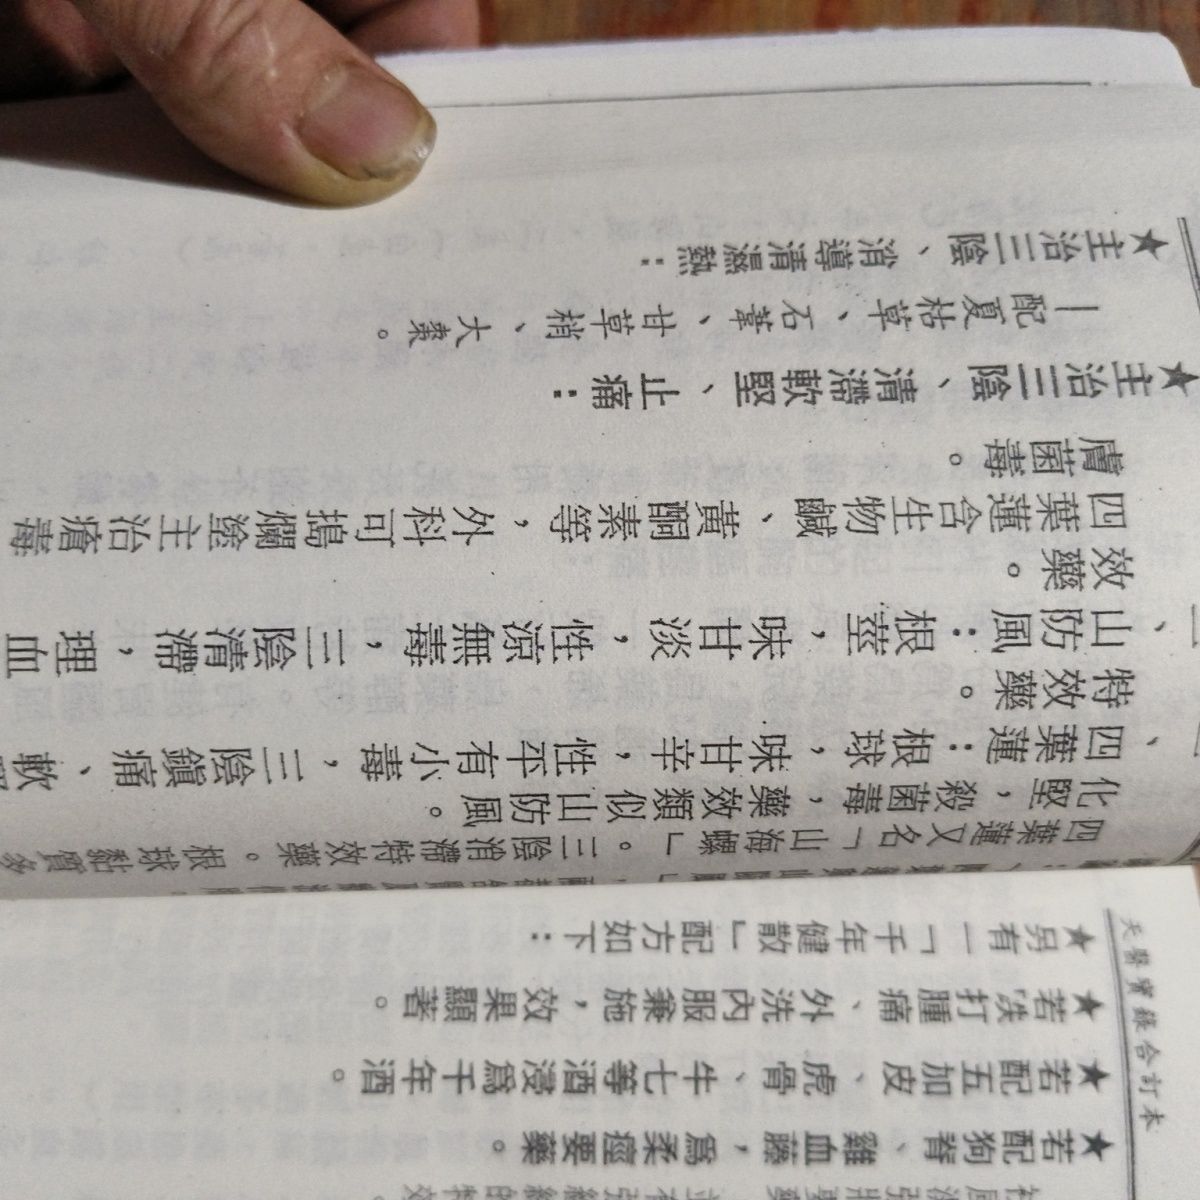 天醫寶錄合訂本
★若配狗脊、雞血藤，爲柔痙要藥。
★若配五加皮、虎骨、牛七等酒浸爲千年酒。
★若跌打腫痛、外洗內服兼施，效果顯著。
★另有一「千年健散」配方如下：
四葉蓮又名「山海螺」。三陰消滯特效藥。根球黏質多
化堅，殺菌毒，藥效類似山防風。
、四葉蓮：根球，味甘辛，性平有小毒，三陰鎮痛、軟
特效藥。
、山防風：根莖，味甘淡，性涼無毒，三陰清滯，理血
效藥。
四葉蓮含生物鹼、黃酮素等，外科可搗爛塗主治瘡毒
膚菌毒。
★主治三陰、清滯軟堅、止痛：
—配夏枯草、石葦、甘草梢、大棗。
★主治三陰、消導清濕熱：